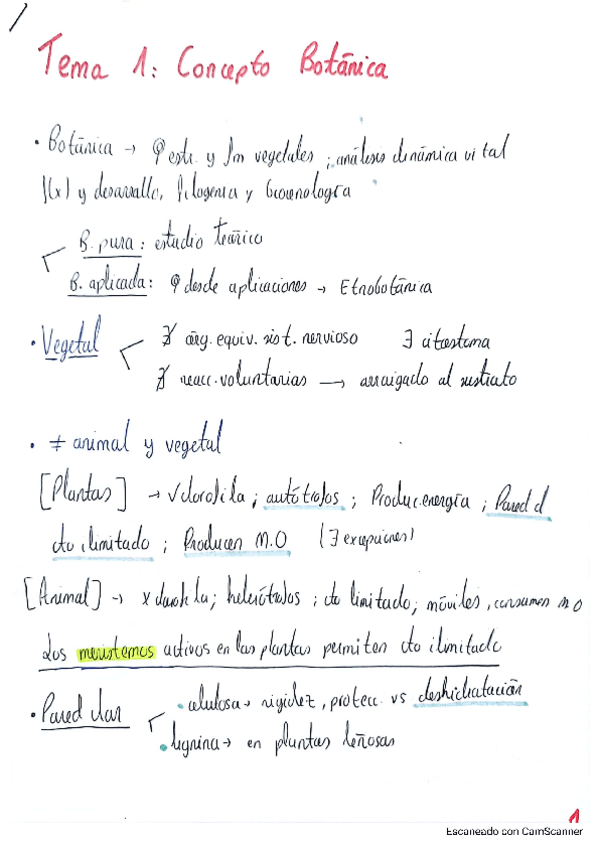 Tema 1: Concepto Botánica
• Botánica → φ estr. y fm vegetales ; análisis dinámica vital
f(x) y desarrollo, filogenia y
B. pura: estudio teórico
B. aplicada: φ desde aplicaciones → Etnobotánica
• Vegetal
∄ órg. equiv. sist. nervioso ∃ citostoma
∄ reacc. voluntarias → arraigado al sustrato
• ≠ animal y vegetal
[Plantas] → ✓clorofila ; autótrofos ; Produc. energía ; Pared cl
cto ilimitado ; Producen M.O (∃ excepciones)
[Animal] → x clorofila; heterótrofos ; cto limitado; móviles, consumen MO
Los meristemos activos en las plantas permiten cto ilimitado
• Pared clar
• celulosa → rigidez, protecc. vs deshidratación
• lignina → en plantas leñosas
1
Escaneado con CamScanner